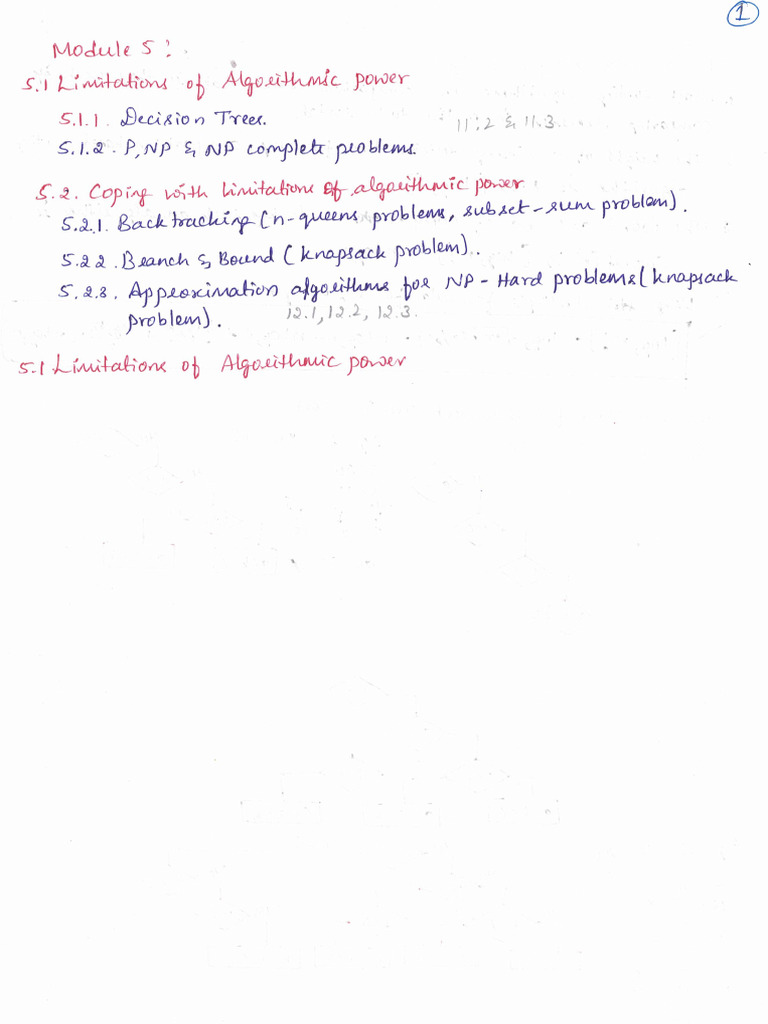 1
Module 5:
5.1 Limitations of Algorithmic power
5.1.1. Decision Trees.
11.2 & 11.3.
5.1.2. P, NP & NP complete problems.
5.2. Coping with limitations of algorithmic power
5.2.1. Backtracking (n-queens problems, subset-sum problem).
5.2 2. Branch & Bound (knapsack problem).
5.2.3. Approximation algorithms for NP-Hard problems (knapsack
problem). 12.1, 12.2, 12.3.
5.1 Limitations of Algorithmic power